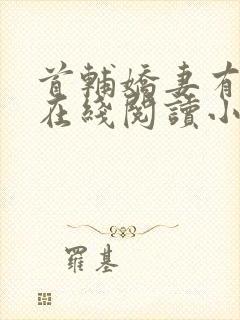 首輔嬌妻有
在綫閱讀小
羅基